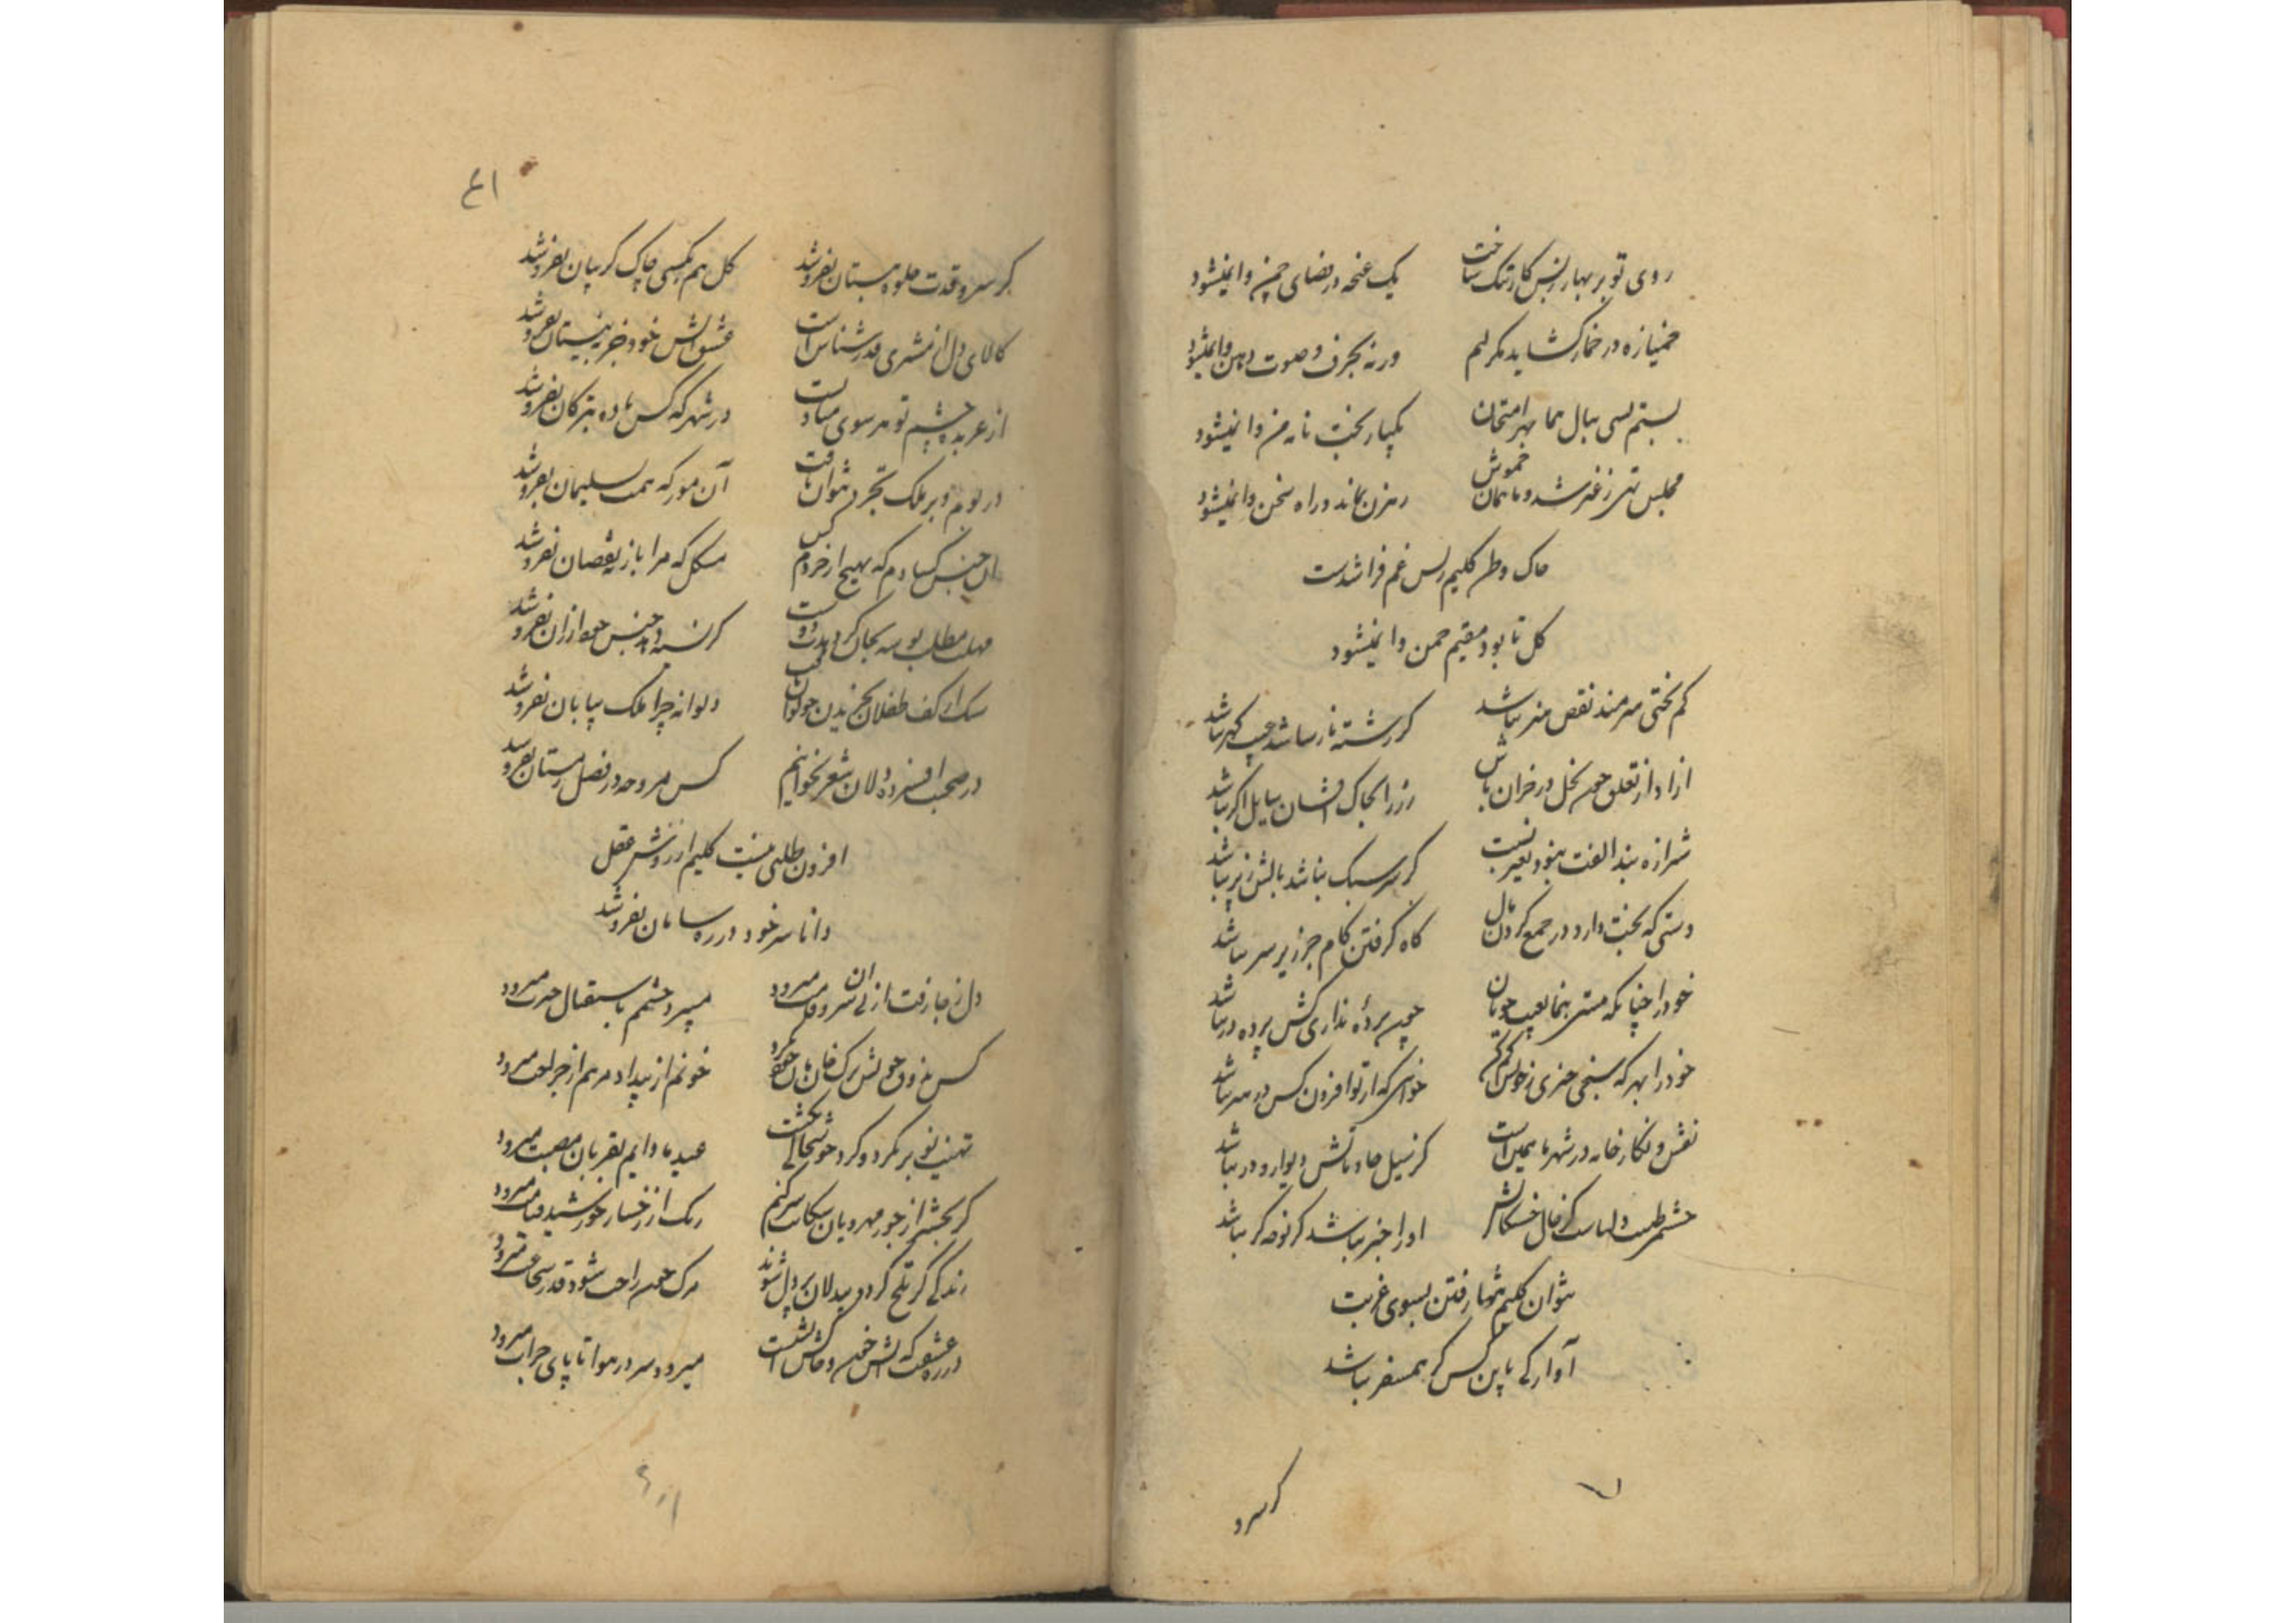 روی تو بر بهار ز بس کار تنگ ساخت یک غنچه در فضای چمن وا نمیشود
خمیازه در خمار گشاید مگر لبم ورنه بحرف و صوت دهن وا نمیشود
بستم بسی ببال هما بهر امتحان یکبار بخت نامه من وا نمیشود
مجلس تهی ز غیر شد و ما همان خموش رهزن نماند و راه سخن وا نمیشود
خاک وطن کلیم ز بس غم فزا شدست
گل تا بود مقیم چمن وا نمیشود
کم بختی هنرمند نقص هنر نباشد گر رشته نارسا شد عیب گهر نباشد
ازاد از تعلق چون نخل در خزان باش زر را بخاک افشان سایل اگر نباشد
شیرازه بند الفت بیخود بغیر نیست گر سر سبک نباشد بالش ز پر نباشد
دستی که بخت دارد در جمع کردن مال گاه گرفتن کام جز زیر سر نباشد
خود را چنانکه هستی بنما بعیب جویان چون پردهٔ نداری کس پرده در نباشد
خود را بهر که سنجی چیزی ز خویش کم کن خواهی که از تو افزون کس در هنر نباشد
نقش و نگار خانه در شهر ما همین است کز سیل حادثاتش دیوار و در نباشد
او را خبر نباشد گر نوحه گر نباشد
نتوان کلیم تنها رفتن بسوی غربت
آوارگی باین کس گر همسفر نباشد
گر سرو
۴۱
گر سرو قدت جلوه ببستان نفروشد گل هم بکسی چاک گریبان نفروشد
کالای دل از مشتری قدرشناس است عشق آتش خود جز به نیستان نفروشد
از عربده چشم تو هر سوی مناد است در شهر که کس باده بترکان نفروشد
در بوم و بر ملک تجرد نتوان یافت آن مور که همت بسلیمان نفروشد
آن جنس کسادم که بهیچ ار خردم کس مشکل که مرا باز بنقصان نفروشد
مهلت مطلب بوسه بجان گر دهدت دوست گر نسیه دهد جنس خود ارزان نفروشد
سنگ از کف طفلان بخریدن چو توان دیوانه چرا ملک بیابان نفروشد
در صحبت افسرده دلان شعر نخوانیم کس مروحه در فصل زمستان نفروشد
افزون طلبی نیست کلیم از روش عقل
دانا سر خود در ره سامان نفروشد
دل ز جا رفت از پی آن سرو قامت میرود میپرد چشمم باستقبال حیرت میرود
خونم از بیداد مرهم از جراحت میرود
تهنیت نو بر نکرد و گرد خوشحالی نکشت عید ما دایم بقربان مصیبت میرود
گر بمحشر از جور مهرویان شکایت سر کنم رنگ از رخسار خورشید قیامت میرود
زندگی گر تلخ گردد بیدلان پر دل شوند مرگ چون راحت شود قدر شجاعت میرود
میرود سر در هوا تا پای جرات میرود